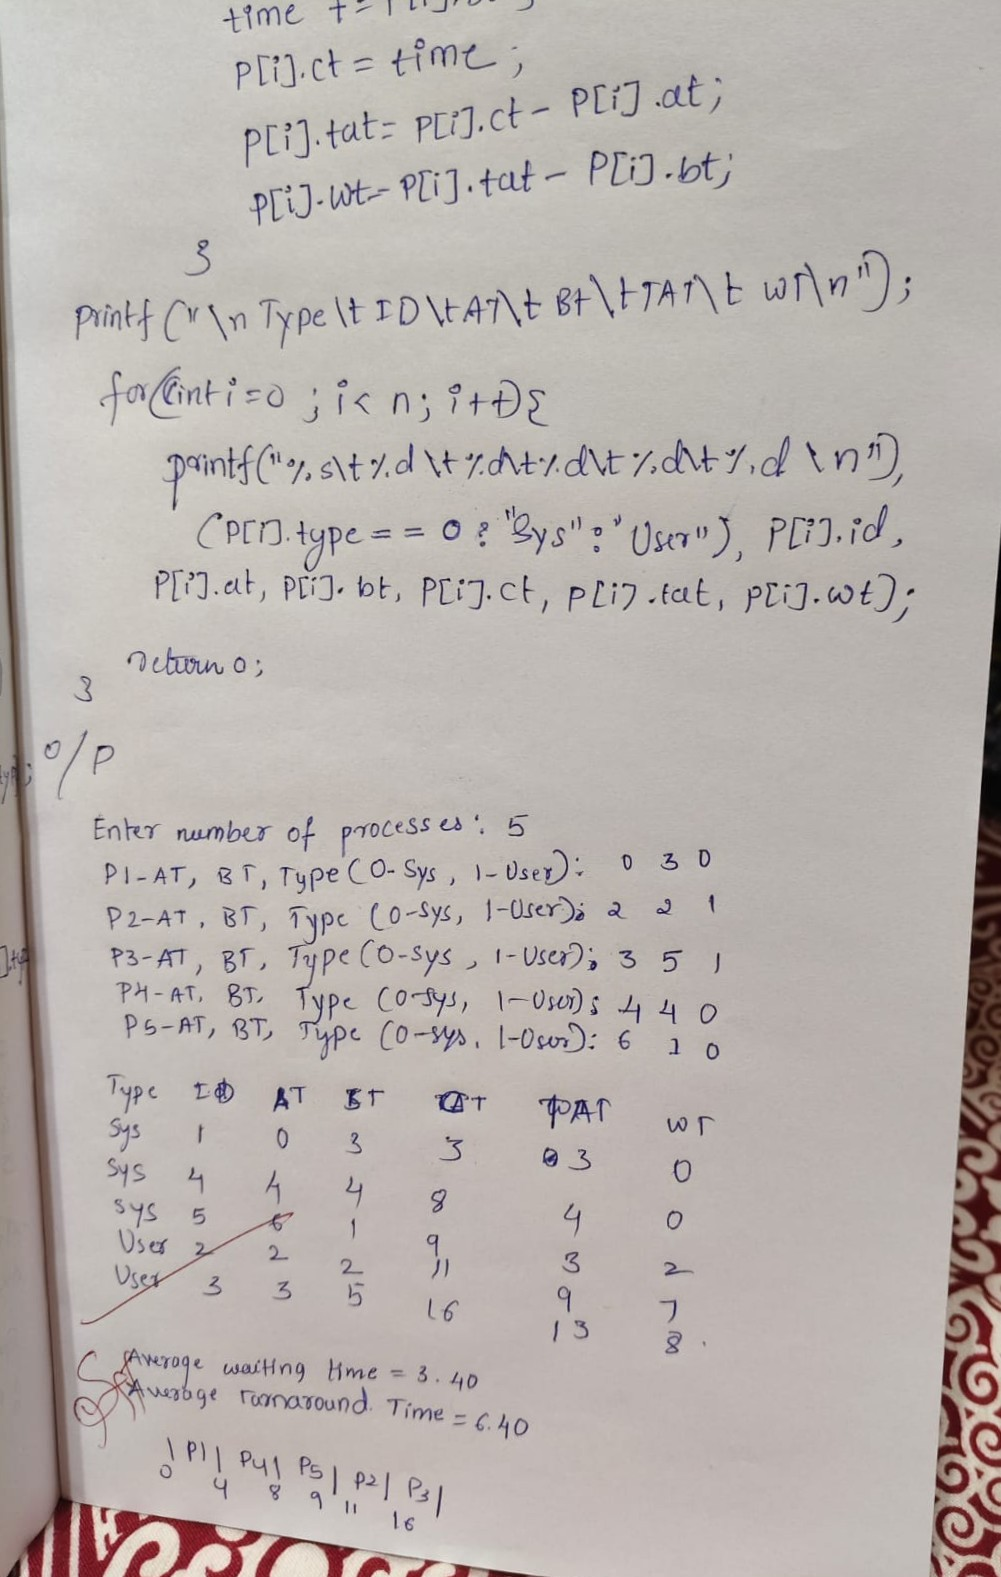 time +=
P[i].ct = time ;
P[i].tat= P[i].ct - P[i].at;
P[i].wt= P[i].tat - P[i].bt;
}
printf("\n Type\t ID\tAT\t Bt\tTAT\t WT\n");
for(int i=0 ; i< n; i++){
printf("%s\t%d\t%d\t%d\t%d\t%d \n"),
(P[i].type == 0 ? "Sys" : "User"), P[i].id,
P[i].at, P[i].bt, P[i].ct, P[i].tat, P[i].wt);
return 0;
}
O/P
Enter number of processes: 5
P1-AT, BT, Type (0-Sys, 1-User): 0 3 0
P2-AT, BT, Type (0-sys, 1-User): 2 2 1
P3-AT, BT, Type (0-sys, 1-User): 3 5 1
P4-AT, BT, Type (0-sys, 1-User): 4 4 0
P5-AT, BT, Type (0-sys, 1-User): 6 1 0
Type ID AT BT CT TAT WT
Sys 1 0 3 3 3 0
Sys 4 4 4 8 4 0
Sys 5 6 1 9 3 2
User 2 2 2 11 9 7
User 3 3 5 16 13 8.
Average waiting time = 3.40
Average Turnaround. Time = 6.40
| P1 | P4 | P5 | P2 | P3 |
0 4 8 9 11 16